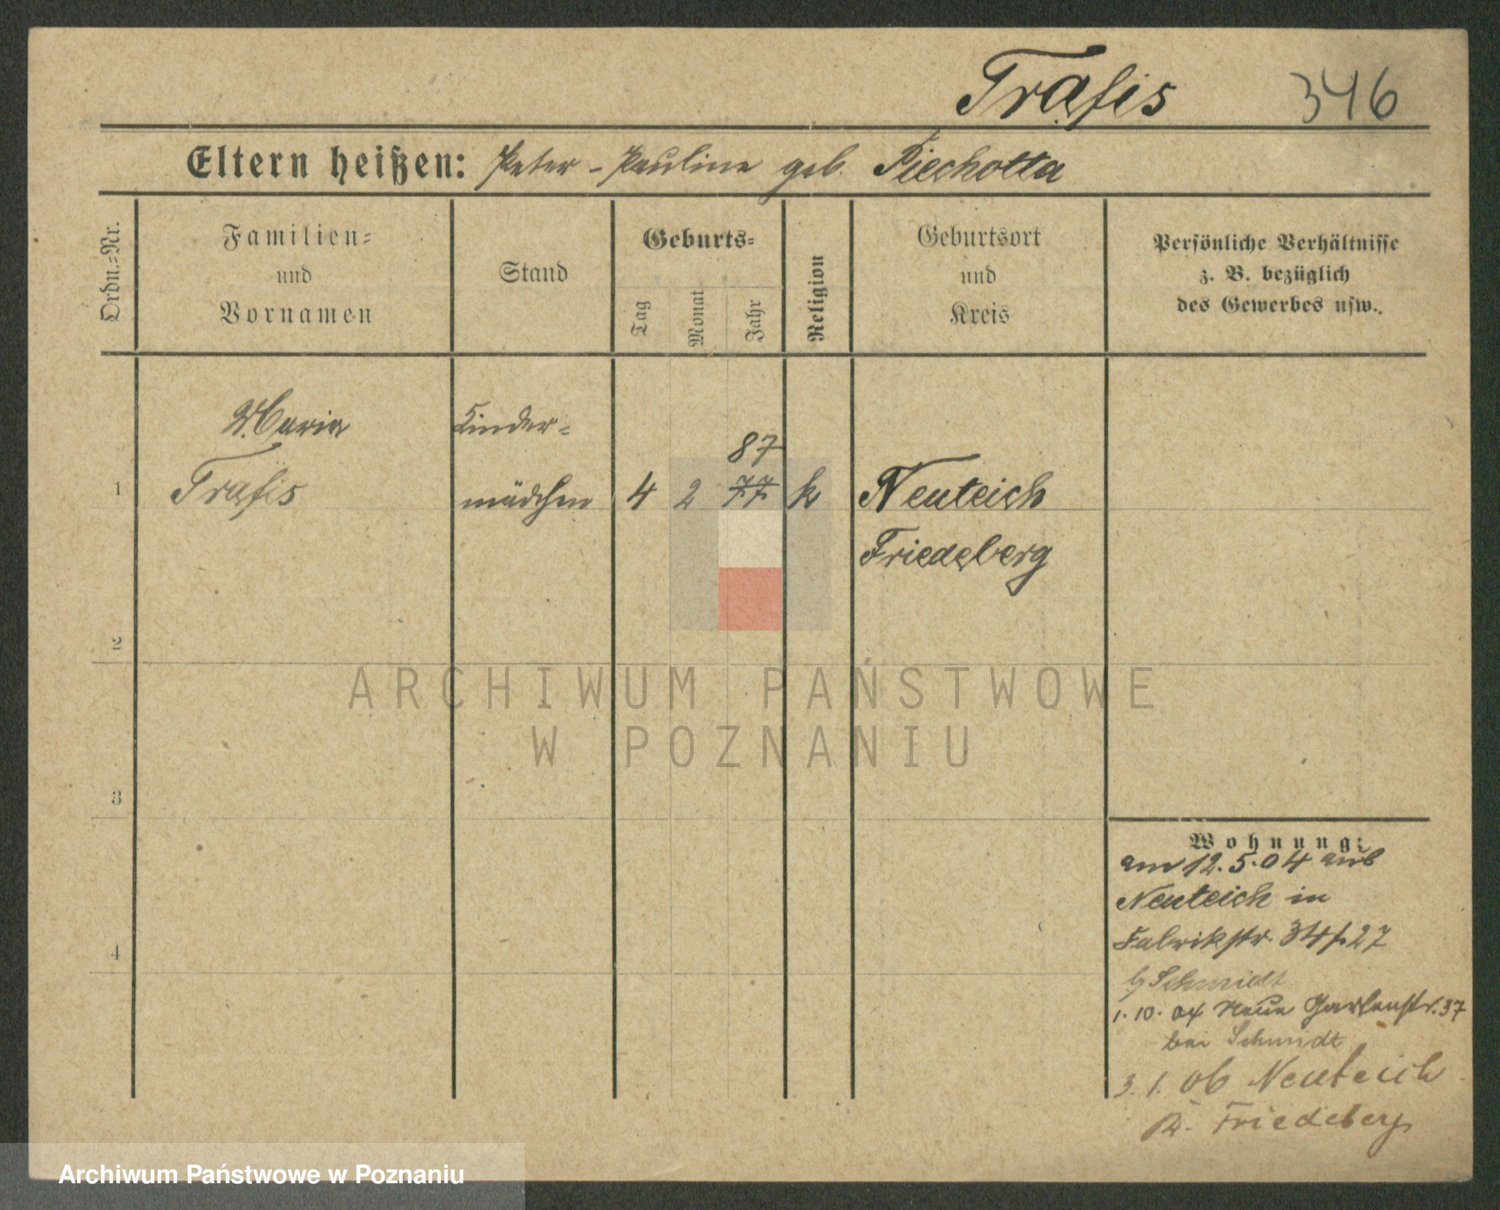 Trafis 346
Eltern heißen: Peter - Pauline geb. Piechotta
Ordn.-Nr.
Familien-
und
Vornamen
Stand
Geburts-
Tag
Monat
Jahr
Religion
Geburtsort
und
Kreis
Persönliche Verhältnisse
z. B. bezüglich
des Gewerbes usw.
Maria Kinder-
87
1 Trafis mädchen 4 2 77 k Neuteich
Friedeberg
2
ARCHIWUM PAŃSTWOWE
W POZNANIU
3
Wohnung:
am 12.5.04 aus
Neuteich in
Fabrikstr. 27
4
b/ Schmidt
1. 10. 04 Neue Gartenstr. 37
bei Schmidt
3. 1. 06 Neuteich
K. Friedeberg
Archiwum Państwowe w Poznaniu